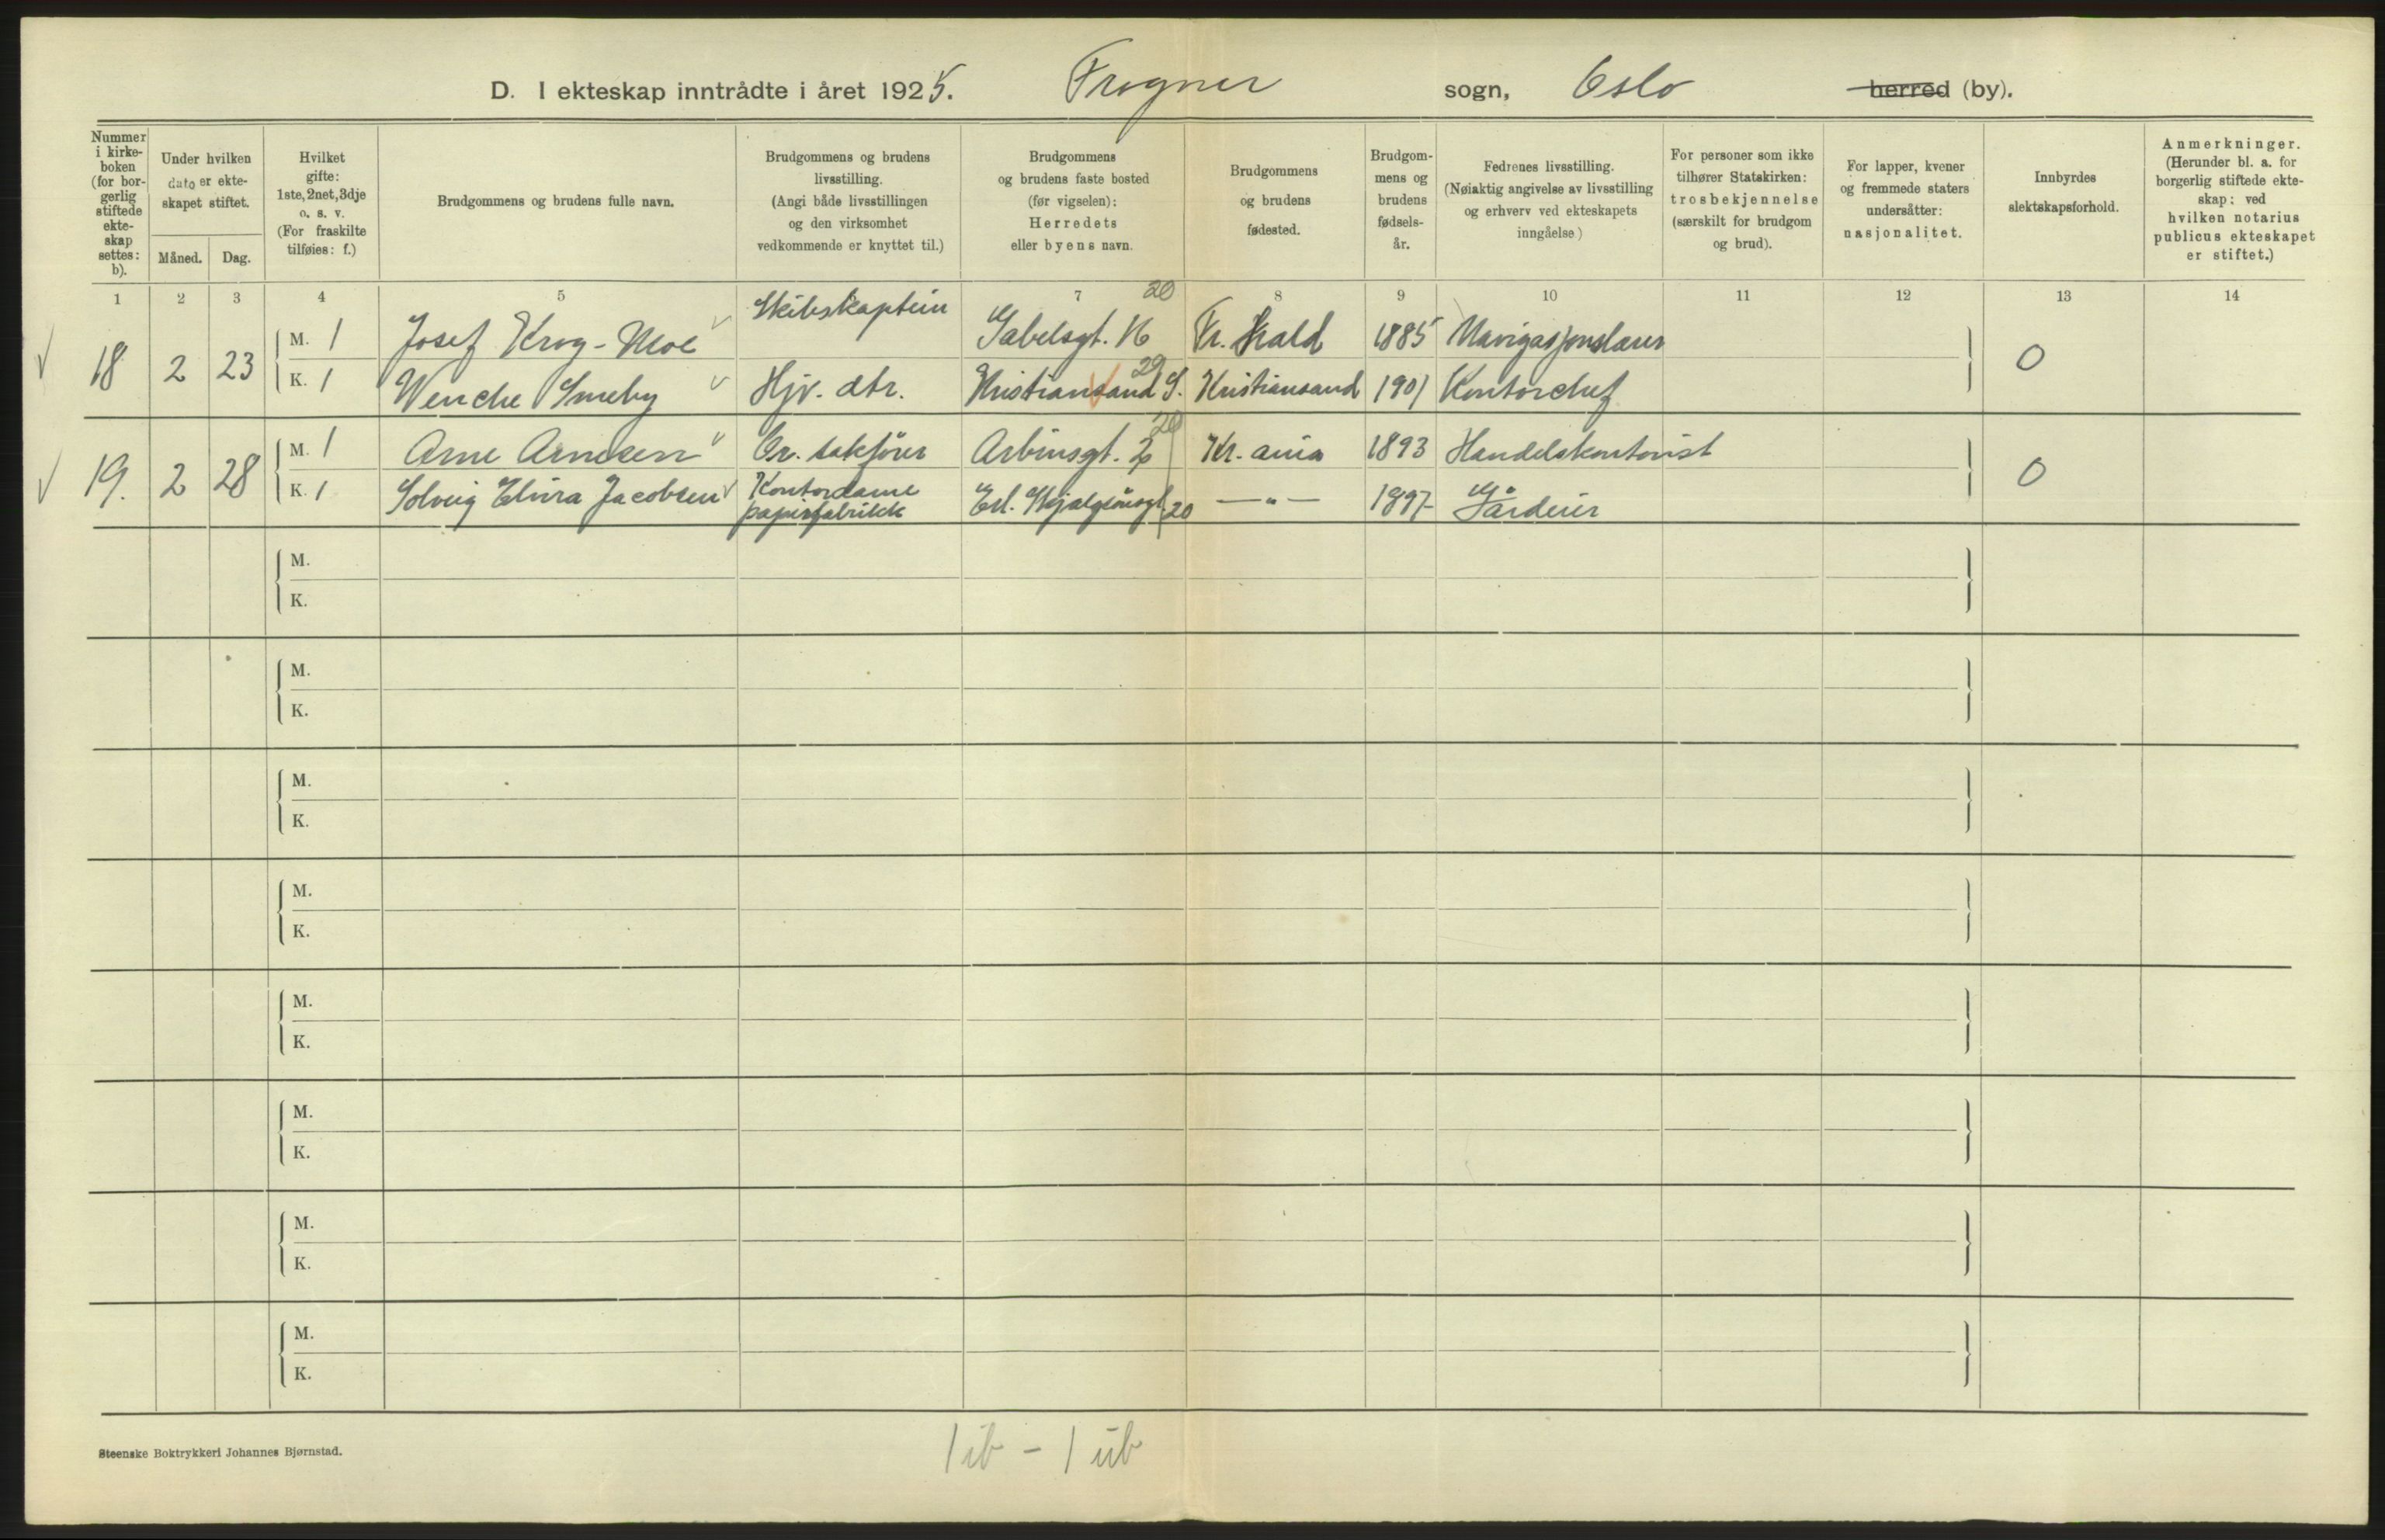 D. I ekteskap inntrådte i året 1925. Frogner sogn, Oslo herred (by).
Nummer i kirke- boken (for bor- gerlig stiftede ekte- skap settes: b).
Under hvilken dato er ekte- skapet stiftet.
Måned. Dag.
Hvilket gifte: 1ste, 2net, 3dje o. s. v. (For fraskilte tilføies: f.)
Brudgommens og brudens fulle navn.
Brudgommens og brudens livsstilling. (Angi både livsstillingen og den virksomhet vedkommende er knyttet til.)
Brudgommens og brudens faste bosted (før vigselen): Herredets eller byens navn.
Brudgommens og brudens fødested.
Brudgom- mens og brudens fødsels- år.
Fedrenes livsstilling. (Nøiaktig angivelse av livsstilling og erhverv ved ekteskapets inngåelse)
For personer som ikke tilhører Statskirken: trosbekjennelse (særskilt for brudgom og brud).
For lapper, kvener og fremmede staters undersåtter: nasjonalitet.
Innbyrdes slektskapsforhold.
Anmerkninger. (Herunder bl. a. for borgerlig stiftede ekte- skap: ved hvilken notarius publicus ekteskapet er stiftet.)
1 2 3 4 5 6 7 8 9 10 11 12 13 14
18 2 23 M. 1 Josef Krog-Moe Skibskaptein Gabelsgt. 16 20 Fr. Hald 1885 Navigasjonslærer 0
K. 1 Wenche Smeby Hjv. dtr. Kristiansand S. 29 Kristiansand 1901 Kontorchef
19. 2 28 M. 1 Arne Arnesen Or. sakfører Arbinsgt. 2 20 Kr.ania 1893 Handelskontorist 0
K. 1 Solveig Elvira Jacobsen Kontordame papirfabrikk Erl. Skjalgsønsgt. 20 — " — 1897 Gårdeier
M.
K.
M.
K.
M.
K.
M.
K.
M.
K.
M.
K.
M.
K.
M.
K.
Steenske Boktrykkeri Johannes Bjørnstad.
1 ib - 1 ub